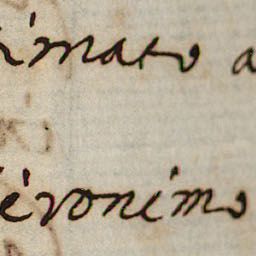 imato a
ieronimo